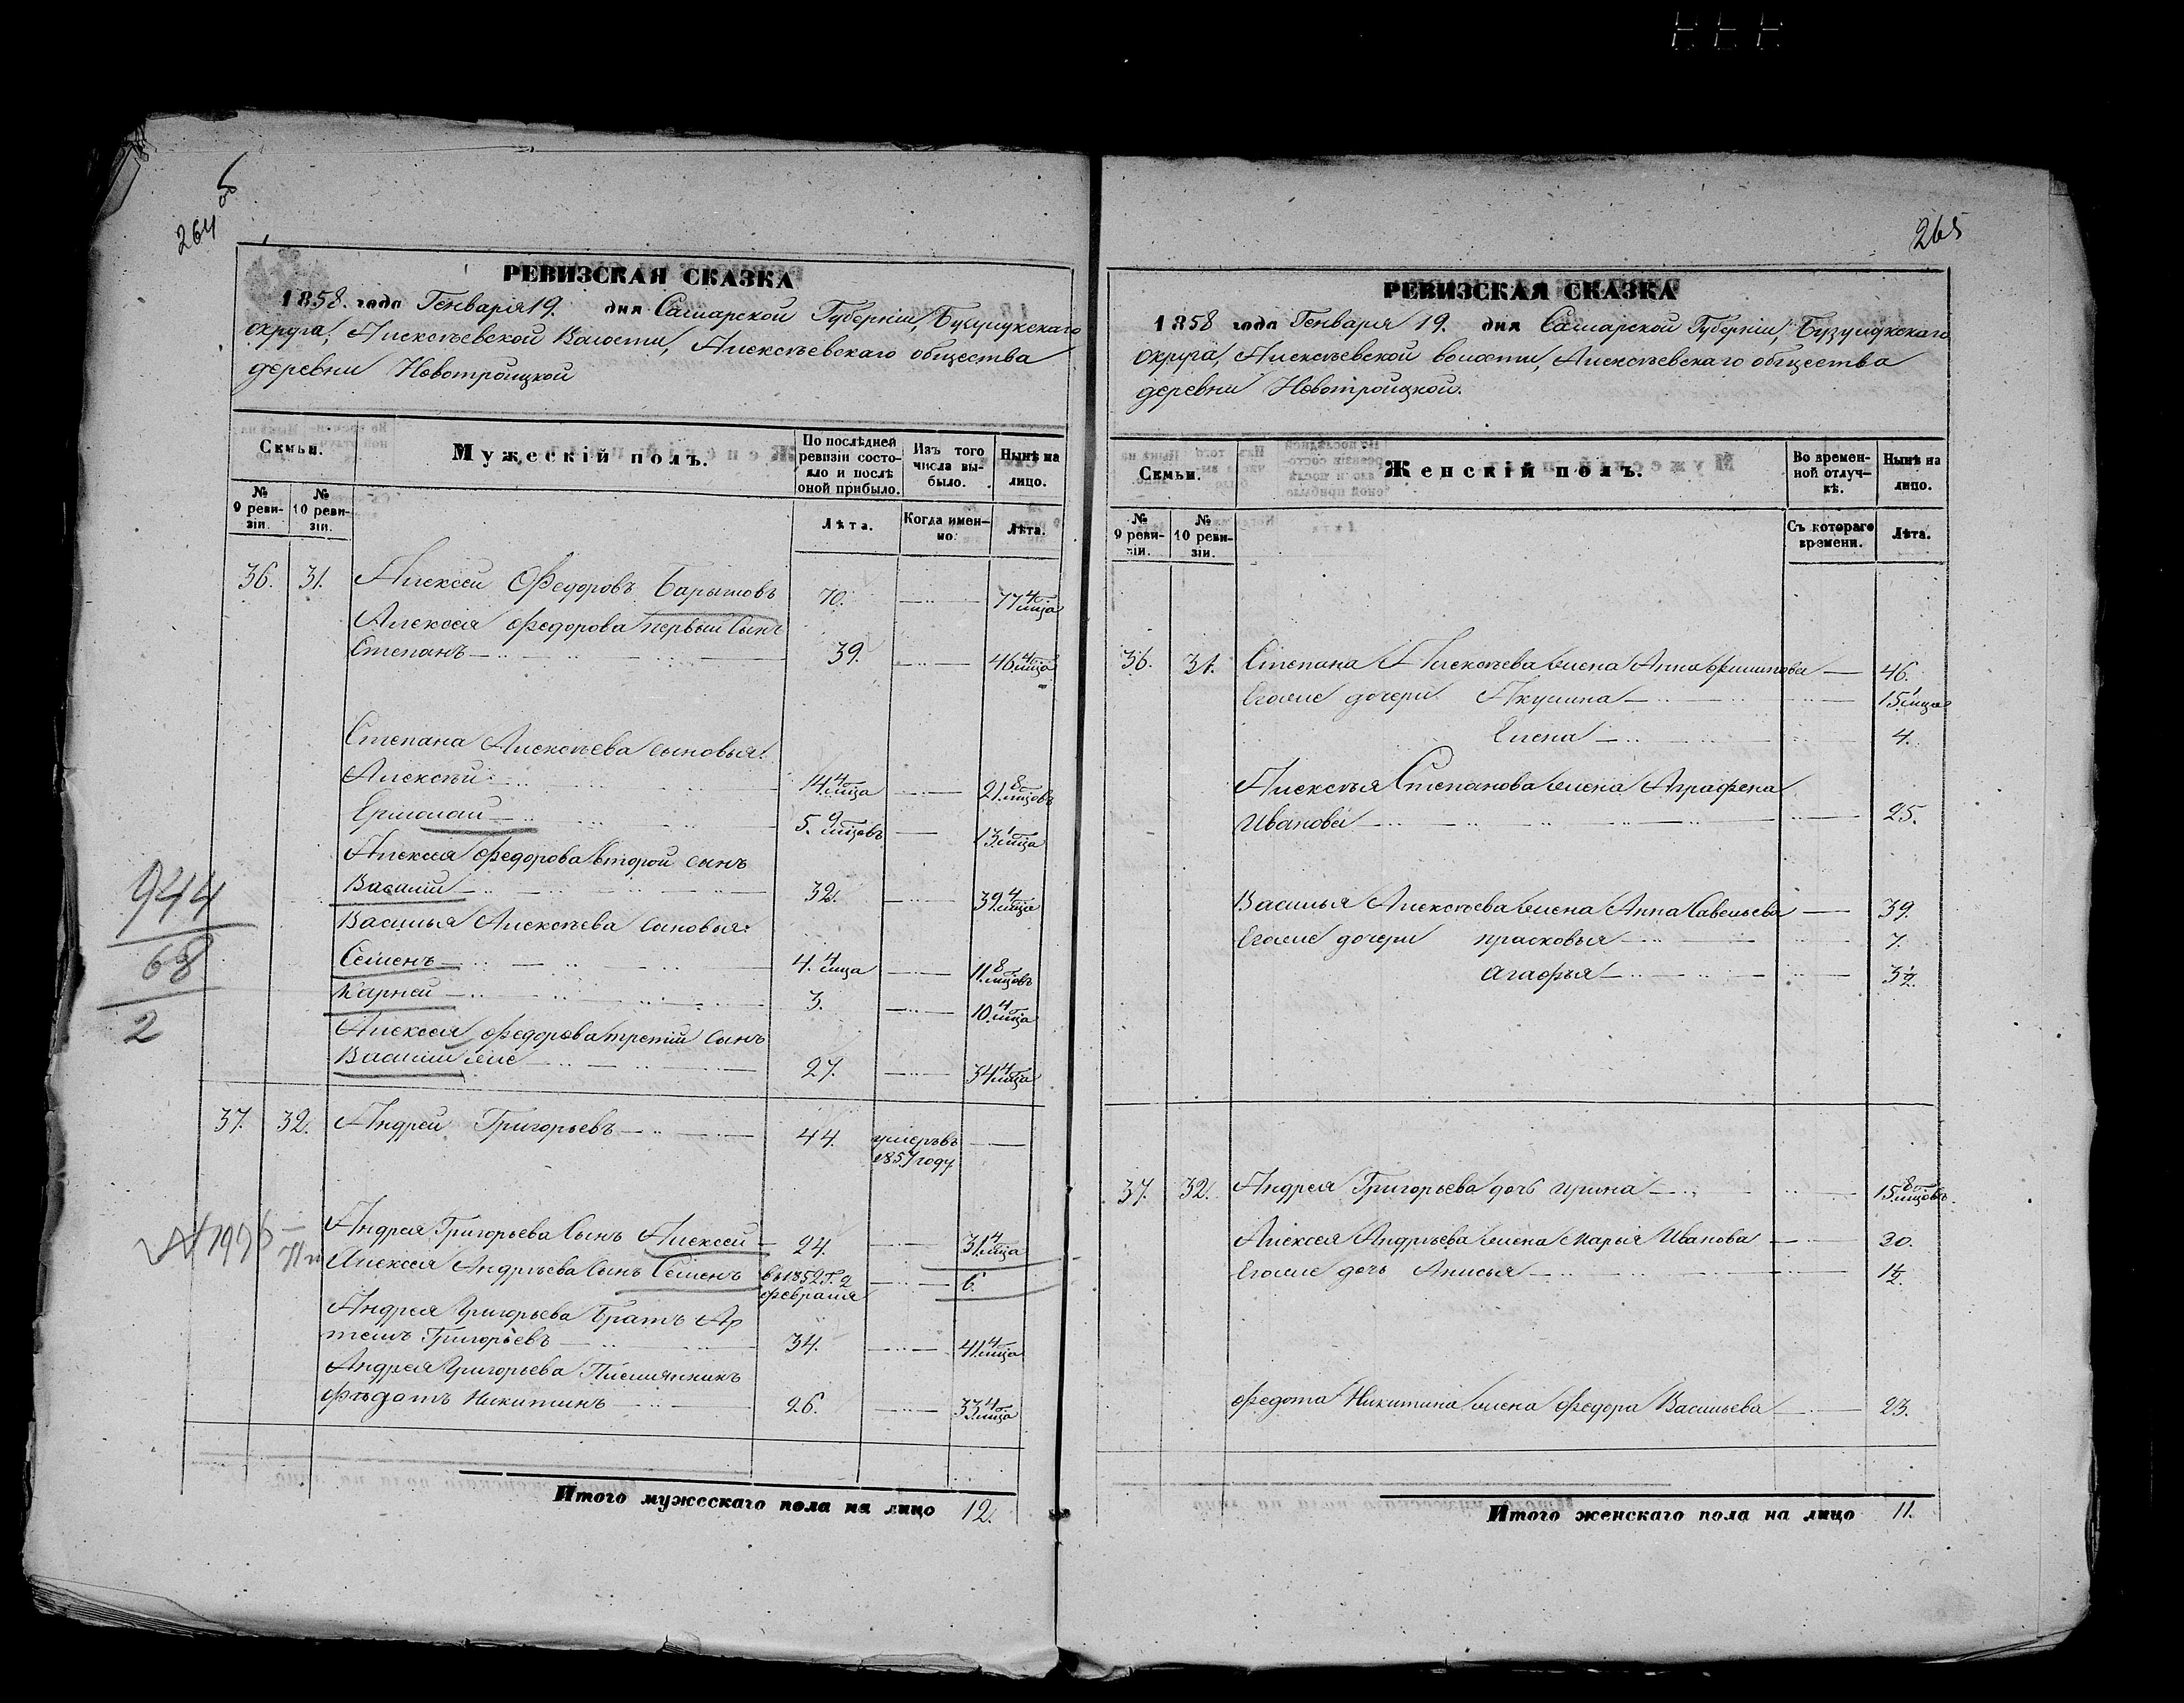 264 об
РЕВИЗСКАЯ СКАЗКА
1858. года Генваря 19. дня Самарской Губерніи, Бузулукскаго
округа, Алексѣевской Волости, Алексѣевскаго общества
деревни Новотроицкой
Семьи.
Мужескій полъ.
По послѣдней ревизіи состояло и послѣ оной прибыло.
Изъ того числа выбыло.
Нынѣ на лицо.
№ 9 ревизіи.
№ 10 ревизіи.
Лѣта.
Когда именно.
Лѣта.
36. 31. Алексей Федоровъ Барышовъ 70. 77 4 мца
Алексея Федорова первый сынъ
Степанъ 39. 46 4 мца
Степана Алексѣева сыновья:
Алексѣй 14 4 мца 21. 8 мцовъ
Ермолай 5. 9 мцовъ 13. 1 мца
Алексея Федорова второй сынъ
Василій 32. 39 4 мца
Василья Алексѣева сыновья:
Семенъ 4. 4 мца 11. 8 мцовъ
Карней 3. 10 4 мца
Алексея Федорова третій сынъ
Василій же 27. 34 4 мца
37. 32. Андрей Григорьевъ 44. умеръ въ
1857 году
Андрея Григорьева сынъ Алексей 24. 31 4 мца
Алексея Андрѣева сынъ Семенъ въ 1852 г. 2 6.
февраля
Андрея Григорьева братъ Ар
темъ Григорьевъ 34. 41 4 мца
Андрея Григорьева Племянникъ
Фѣдотъ Никитинъ 26. 33 4 мца
Итого мужескаго пола на лицо 12.
944
68
2
265
РЕВИЗСКАЯ СКАЗКА
1858 года Генваря 19. дня Самарской Губерніи, Бузулукскаго
округа, Алексѣевской волости, Алексѣевскаго общества
деревни Новотроицкой.
Семьи.
Женскій полъ.
Во временной отлучкѣ.
Нынѣ на лицо.
№ 9 ревизіи.
№ 10 ревизіи.
Съ котораго времени.
Лѣта.
36. 31. Степана Алексѣева жена Анна Филипова 46.
Егоже дочери Акулина 15 1 мца
Елена 4.
Алексѣя Степанова жена Аграфена
Иванова 25.
Василья Алексѣева жена Анна Савельева 39.
Егоже дочери прасковья 7.
агафья 3½.
37. 32. Андрея Григорьева дочь ирина 15 8 мцовъ
Алексея Андрѣева жена Марья Иванова 30.
Егоже дочь Анисья 1½.
Федота Никитина жена Федора Васильева 23.
Итого женскаго пола на лицо 11.